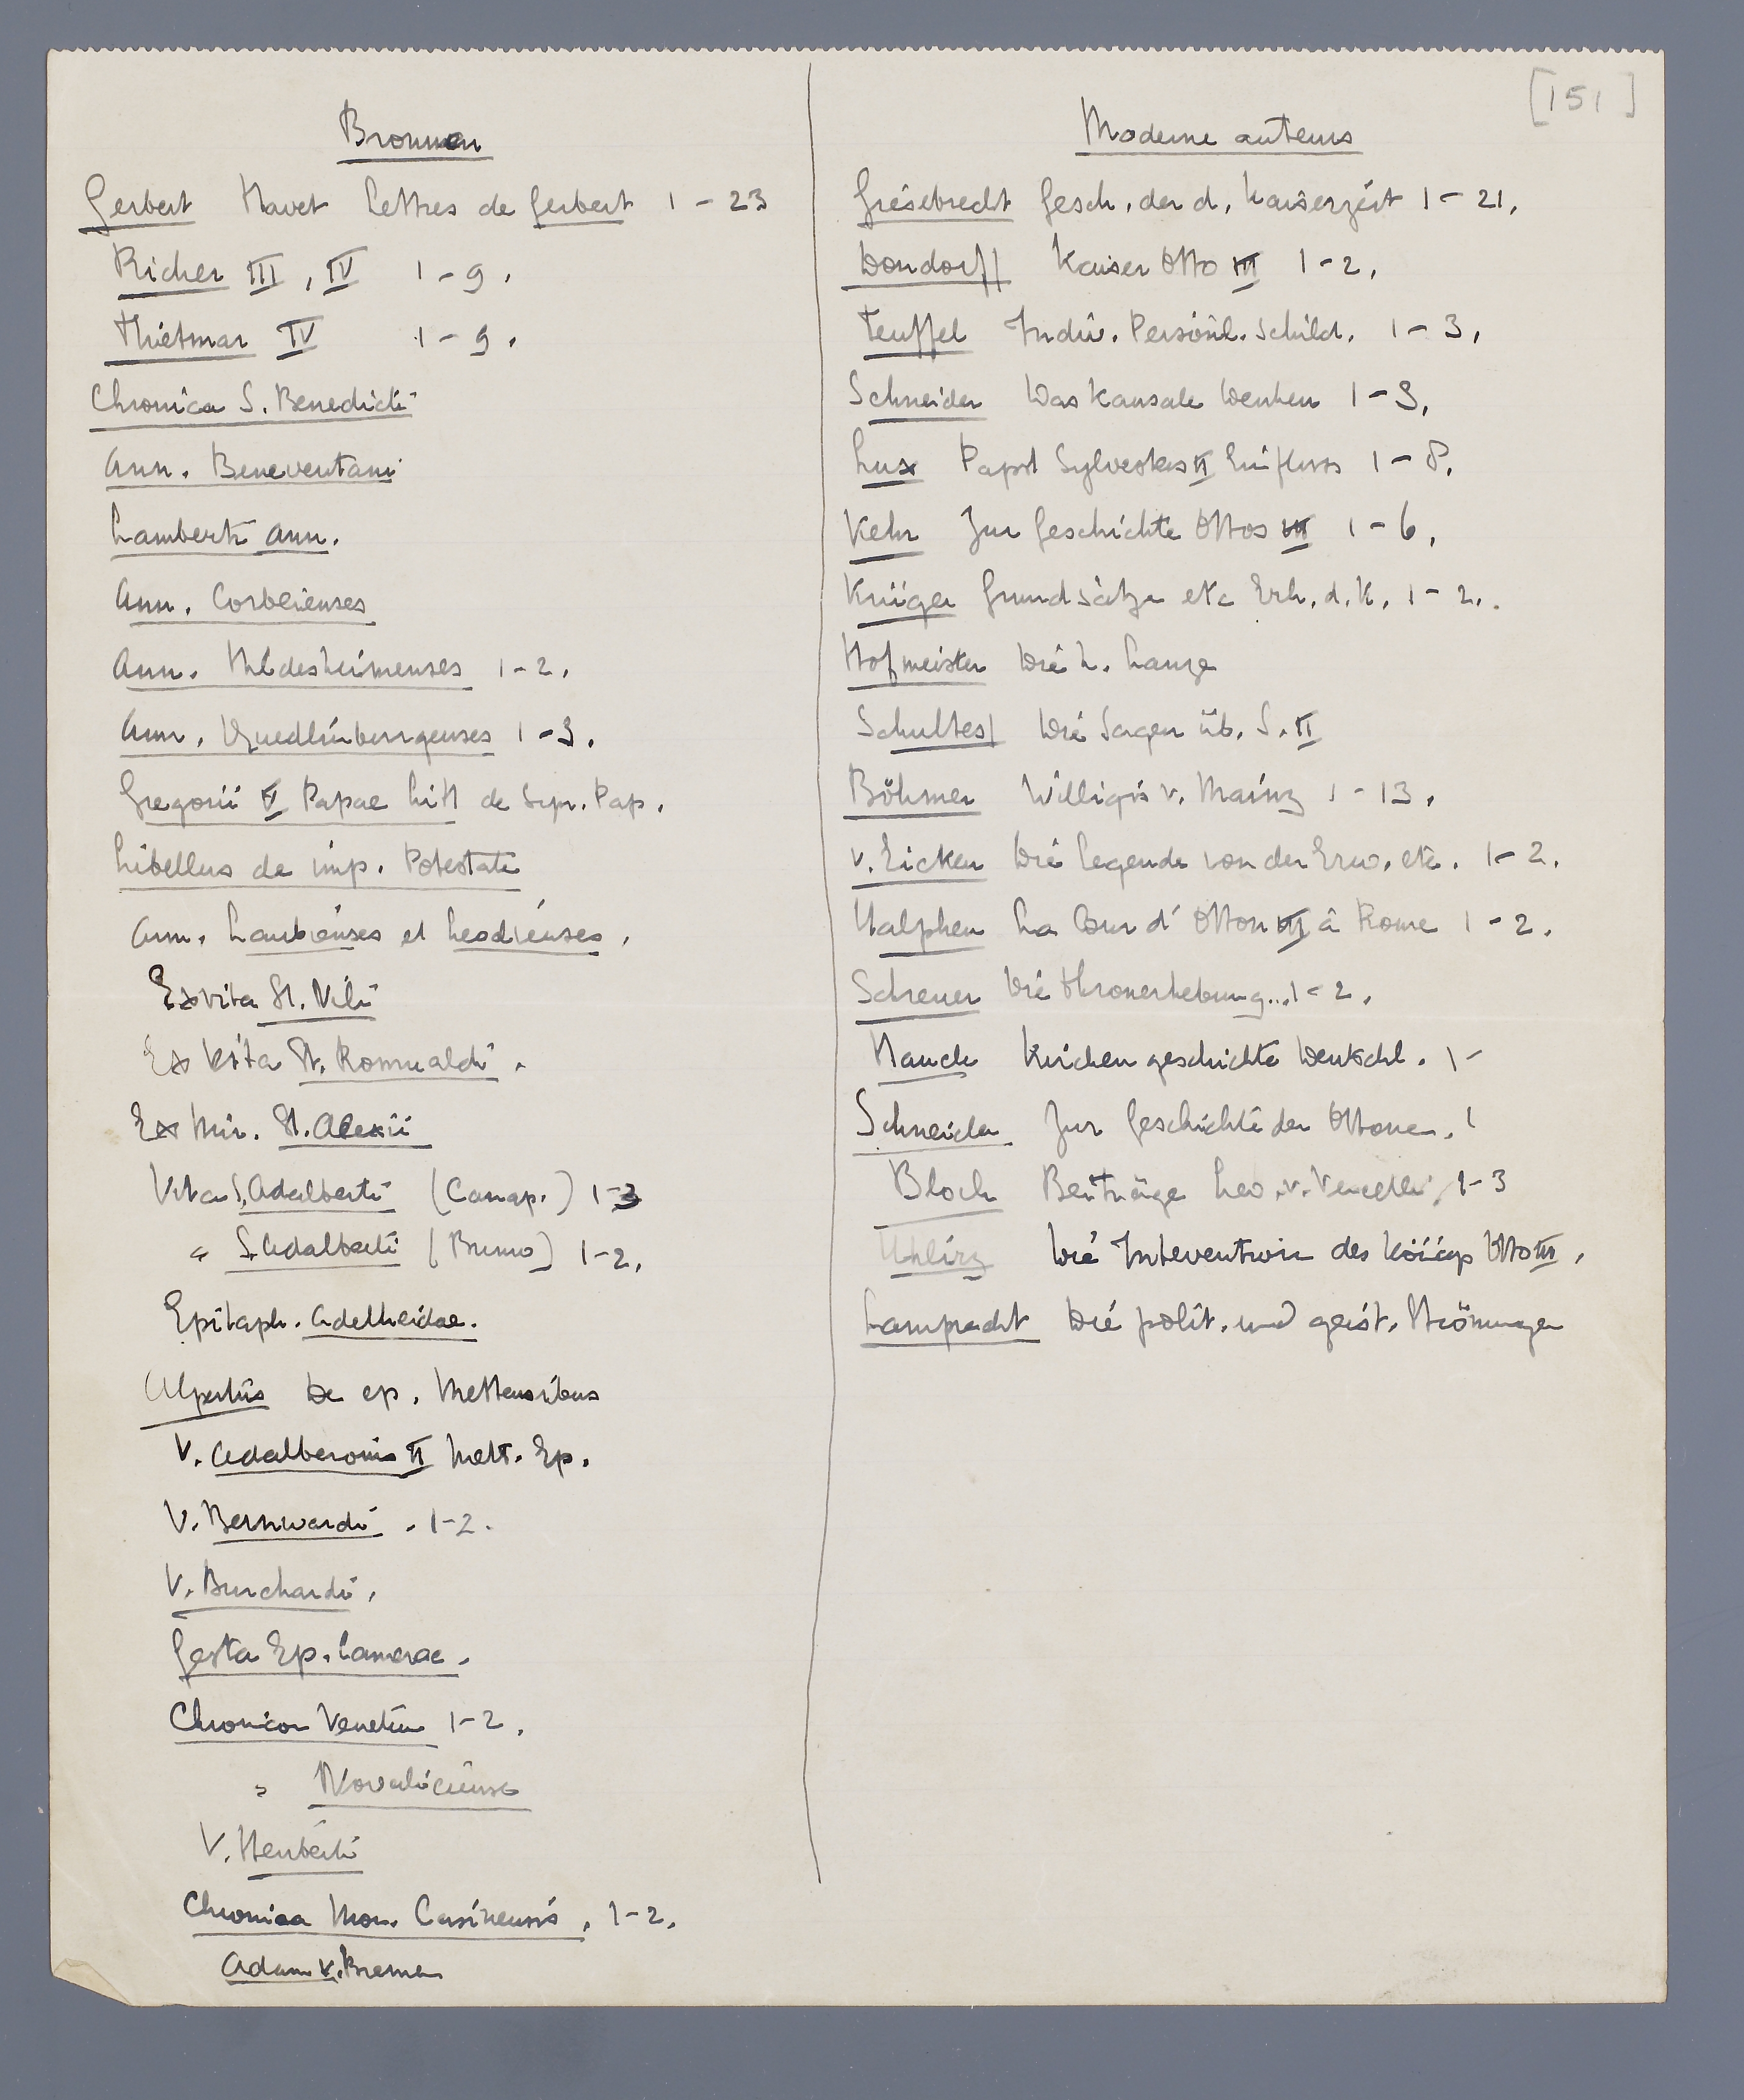 [151]
Bronnen
Gerbert Havet Lettres de Gerbert 1-23
Richer III, IV 1-9.
Thietmar IV 1-9.
Chronica S. Benedicti
Ann. Beneventani
Lamberti Ann.
Ann. Corbeienses
Ann. Hildesheimenses 1-2.
Ann. Quedlinburgenses 1-3.
Gregorii V Papae Litt de Pap.
Libellus de imp. Potestate
Ann. Laubienses et Leodienses.
Ex vita St. Nili
Ex Vita St. Romualdi.
Ex Mir. St. Alexii
Vita S. Adalberti (Canap.) 1-3
" S. Adalberti (Bruno) 1-2.
Epitaph. Adelheidae.
Alpertus De ep. Mettensibus
V. Adalberonis II Mett. Ep.
V. Bernwardi. 1-2.
V. Burchardi.
Gesta Ep. Camerac.
Chronicon Venetum 1-2.
" Novaliciense
V. Heriberti
Chronica Mon. Casinensis. 1-2.
Adam v. Bremen
Moderne auteurs
Giesebrecht Gesch. der d. Kaiserzeit 1-21.
Dondorff Kaiser Otto III 1-2.
Teuffel Indiv. Persönl. Schild. 1-3.
Schneider Das Kausale Denken 1-3.
Lux Papst Sylvesters II Einfluss 1-8.
Kehr Zur Geschichte Ottos III 1-6.
Krüger Grundsätze etc Erh. d. K. 1-2.
Hofmeister Die h. Lanze
Schultess Die Sagen üb. S. II
Böhmer Willigis v. Mainz 1-13.
v. Eicken Die Legende von der Erw. etc. 1-2.
Halphen La Cour d'Otton III à Rome 1-2.
Schreuer Die Thronerhebung... 1-2.
Hauck Kirchengeschichte Deutschl. 1-
Schneider Zur Geschichte der Ottonen. 1
Bloch Beiträge Leo. v. Vercelli. 1-3
Uhlirz Die Intervention des Otto III.
Lamprecht Die polit. und geist. Strömungen